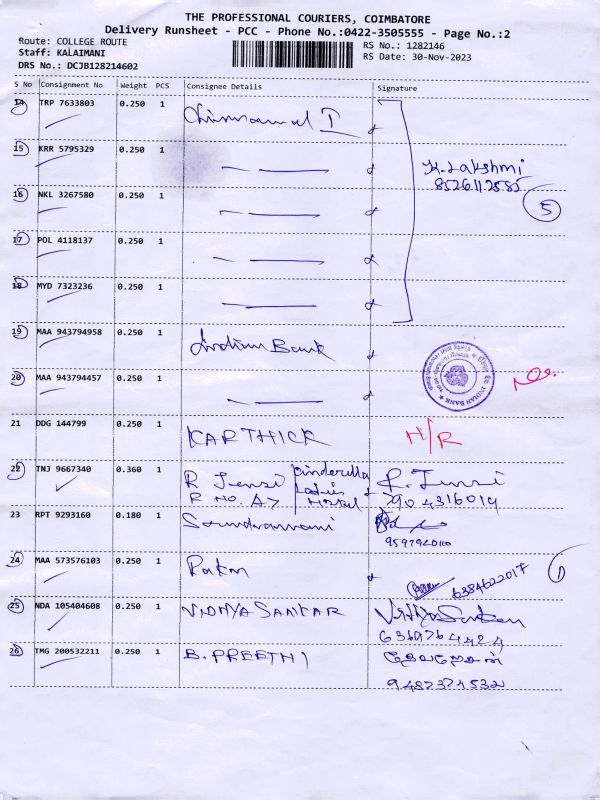 THE PROFESSIONAL COURIERS, COIMBATORE
Delivery Runsheet - PCC - Phone No.:0422-3505555 - Page No.:2
Route: COLLEGE ROUTE RS No.: 1282146
Staff: KALAIMANI RS Date: 30-Nov-2023
DRS No.: DCJB128214602
S No Consignment No Weight PCS Consignee Details Signature
14 TRP 7633803 0.250 1
15 KRR 5795329 0.250 1 K. Lakshmi
16 NKL 3267580 0.250 1 5
17 POL 4118137 0.250 1
18 MYD 7323236 0.250 1
19 MAA 943794958 0.250 1 Indian Bank
20 MAA 943794457 0.250 1 INDIAN BANK
21 DDG 144799 0.250 1 KARTHICK H/R
22 TNJ 9667340 0.360 1 R Jensi R. Jensi
R NO. A7
23 RPT 9293160 0.180 1
24 MAA 573576103 0.250 1 6384622017 1
25 NDA 105404608 0.250 1 VIDHYA SANKAR
26 TMG 200532211 0.250 1 B. PREETHI